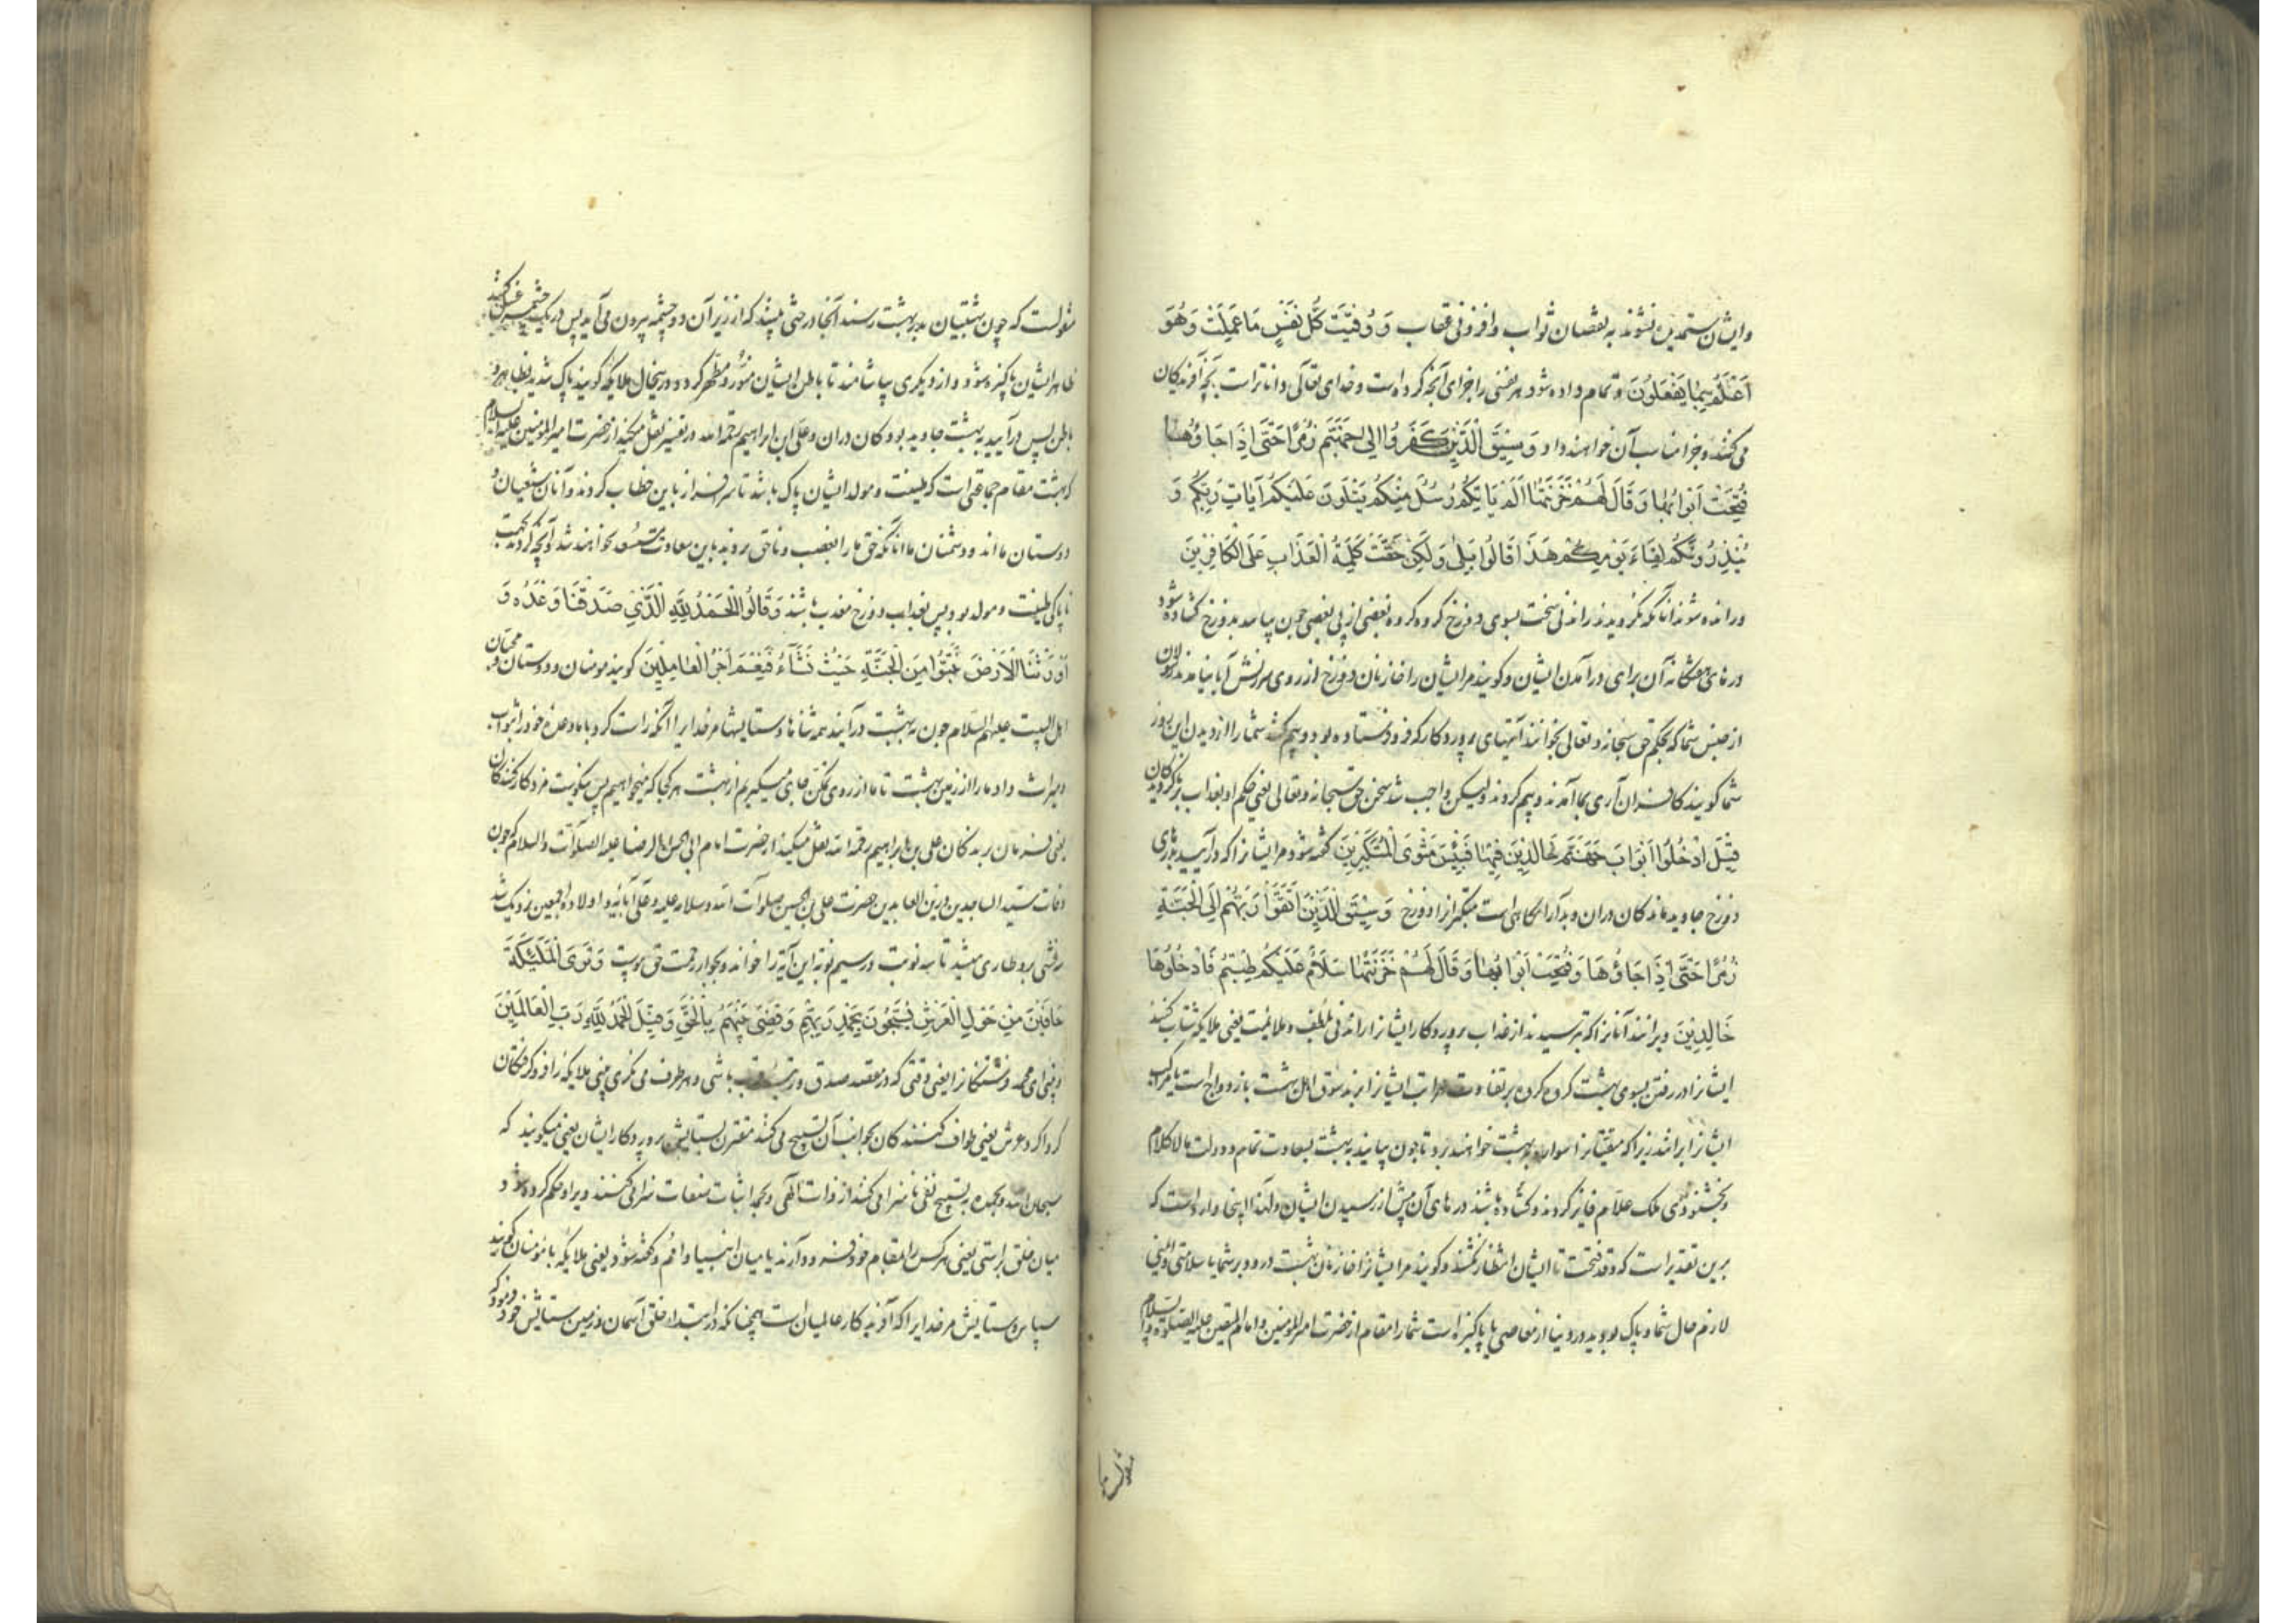 وایشان ستمدیده نشوند به نقصان ثواب و افزونی عقاب وَ وُفِّيَتْ كُلُّ نَفْسٍ مَا عَمِلَتْ وَهُوَ
اَعْلَمُ بِمَا يَفْعَلُونَ و تمام داده شود هر نفسی را جزای آنچه کرده است و خدای تعالی داناتر است بآنچه آفریدگان
می کنند و جزا مناسب آن خواهند داد وَسِيقَ الَّذِينَ كَفَرُوا اِلٰى جَهَنَّمَ زُمَرًا حَتّٰى اِذَا جَاؤُهَا
فُتِحَتْ اَبْوَابُهَا وَقَالَ لَهُمْ خَزَنَتُهَا اَلَمْ يَاْتِكُمْ رُسُلٌ مِنْكُمْ يَتْلُونَ عَلَيْكُمْ آيَاتِ رَبِّكُمْ وَ
يُنْذِرُونَكُمْ لِقَاءَ يَوْمِكُمْ هَذَا قَالُوا بَلٰى وَلٰكِنْ حَقَّتْ كَلِمَةُ الْعَذَابِ عَلَى الْكَافِرِينَ
ورانده شوند آنانکه نگرویدند راندنی سخت بسوی دوزخ کروه کروه بعضی از پی بعضی چون بیایند بدوزخ کشاده شود
درهای هفتکانه آن برای درآمدن ایشان و کویند مر ایشان را خازنان دوزخ از روی سرزنش آیا نیامدند رسولان
از جنس شما که بحکم حق سبحانه و تعالی بخوانند آیتهای پروردکار که فرو فرستاده بود و بیم کنند شما را از دیدن این روز
شما کویند کافران آری بما آمدند و بیم کردند ولیکن واجب شد سخن حق سبحانه و تعالی یعنی حکم او بعذاب بر ناکرویدکان
قِيلَ ادْخُلُوا اَبْوَابَ جَهَنَّمَ خَالِدِينَ فِيهَا فَبِئْسَ مَثْوَى الْمُتَكَبِّرِينَ کفته شود مر ایشانرا که درآیید بدرهای
دوزخ جاوید ماندکان دران و بد آرامکاهی است متکبرانرا دوزخ وَسِيقَ الَّذِينَ اتَّقَوْا رَبَّهُمْ اِلَى الْجَنَّةِ
زُمَرًا حَتّٰى اِذَا جَاؤُهَا وَفُتِحَتْ اَبْوَابُهَا وَقَالَ لَهُمْ خَزَنَتُهَا سَلَامٌ عَلَيْكُمْ طِبْتُمْ فَادْخُلُوهَا
خَالِدِينَ وبرانند آنانرا که ترسیدند از عذاب پروردکار ایشانرا راندنی بلطف و ملایمت یعنی ملایکه شتاب کنند
ایشانرا در رفتن بسوی بهشت کروه کروه بر تفاوت مراتب ایشانرا برند سوق اهل بهشت
ایشانرا برانند زیرا که متقیانرا سواره بهشت خواهند برد تا چون بیایند به بهشت بسعادت تمام و دولت مالاکلام
وبخشنودی ملک علام فایز کردند و کشاده باشند درهای آن پیش از رسیدن ایشان و لهذا اینجا وارد است که
برین تقدیر است که وقد فتحت تا ایشان انتظار نکشند و کویند مر ایشانرا خازنان بهشت درود بر شما یا سلامتی و ایمنی
لازم حال شما و پاک بودید در دنیا از معاصی یا پاکیزه است شما را مقام از حضرت امیرالمؤمنین و امام المتقین علیه الصلوة والسلام
منقولست
منقولست که چون بهشتیان بدر بهشت رسند آنجا درختی بینند که از زیر آن دو چشمه بیرون می آید پس در یک چشمه غسل کنند
ظاهر ایشان پاکیزه شود و از دیگری بیاشامند تا باطن ایشان منوّر و مطهّر کردد و در ینحال ملایکه کویند پاک شدید بظاهر و
باطن پس درآیید به بهشت جاوید بودکان دران و علی ابن ابراهیم رحمه الله در تفسیر نقل میکند از حضرت امیرالمؤمنین علیه السلام
که بهشت مقام جماعتی است که طینت و مولد ایشان پاک باشد تا سرافراز باین خطاب کردند و آنان شیعیان و
دوستان ما اند و دشمنان ما آنانکه حق ما را بغصب و ناحق بردند باین سعادت مستسعد نخواهند شد
ناپاکی طینت و مولد بود پس بعذاب دوزخ معذب باشند وَقَالُوا الْحَمْدُ لِلّٰهِ الَّذِي صَدَقَنَا وَعْدَهُ وَ
اَوْرَثَنَا الْاَرْضَ نَتَبَوَّأُ مِنَ الْجَنَّةِ حَيْثُ نَشَاءُ فَنِعْمَ اَجْرُ الْعَامِلِينَ کویند مومنان و دوستان و محبان
اهل البیت علیهم السلام چون به بهشت درآیند همه ثناها و ستایشها مر خدایرا آنکه راست کرد با ما وعده خود را بثواب
ومیراث داد ما را از زمین بهشت تا ما از روی تمکن جای میکیریم از بهشت هر کجا که میخواهیم پس نیکوست مزد کارکنندکان
یعنی فرمان برندکان علی بن ابراهیم رحمه الله نقل میکند از حضرت امام ابی الحسن الرضا علیه الصلوات والسلام که چون
وفات سید الساجدین و زین العابدین حضرت علی بن الحسین صلوات الله و سلامه علیه و علی آبائه و اولاده اجمعین نزدیک شد
غشی برو طاری میشد تا سه نوبت در سیم نوبه این آیه را خواند و بجوار رحمت حق پیوست وَتَرَى الْمَلٰئِكَةَ
حَافِّينَ مِنْ حَوْلِ الْعَرْشِ يُسَبِّحُونَ بِحَمْدِ رَبِّهِمْ وَقُضِيَ بَيْنَهُمْ بِالْحَقِّ وَقِيلَ الْحَمْدُ لِلّٰهِ رَبِّ الْعَالَمِينَ
وبینی ای محمد فرشتکانرا یعنی وقتی که در مقعد صدق و مرتبه قرب باشی و بهر طرف می نکری بینی ملایکه را فرو کرفتکان
کرداکرد عرش یعنی طواف کنندکان بجوانب آن تسبیح می کنند مقترن بستایش پروردکار ایشان یعنی میکویند که
سبحان الله وبحمده به تسبیح نفی ناسزا می کنند از ذات الهی و بحمد اثبات صفات سزا می کنند ویرا و حکم کرده شود
میان خلق براستی یعنی هر کس را بمقام خود فرود آرند یا میان انبیا و امم و کفته شود یعنی ملایکه با مومنان کویند
سپاس و ستایش مر خدایرا که آفریدکار عالمیان است همچنانکه در ابتداء خلق آسمان و زمین ستایش خود فرمود که